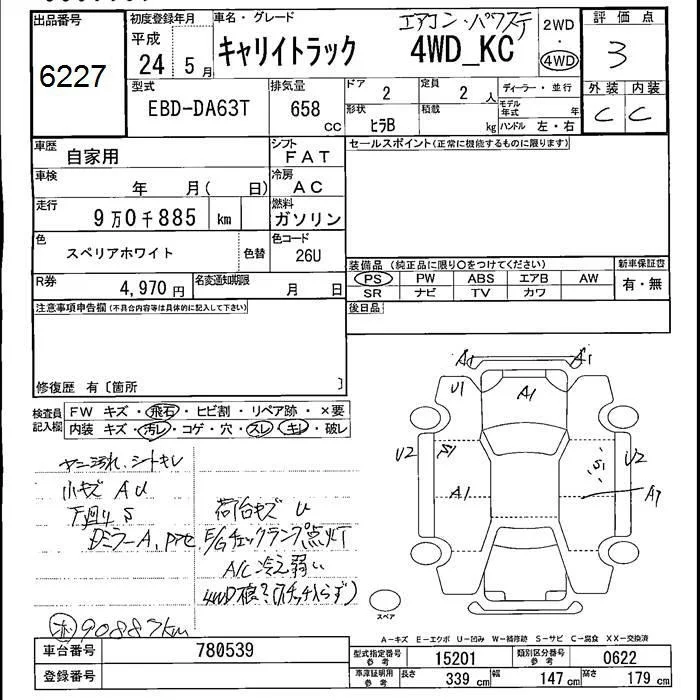 出品番号
6227
初度登録年月
平成
24 5月
車名・グレード
キャリイトラック
エアコン・パワステ
4WD_KC
2WD
・
4WD
評価点
3
外装 内装
C C
型式
EBD-DA63T
排気量
658
CC
ドア
2
定員
2 人
ディーラー・並行
形状
ヒラB
積載
kg
モデル年式 年
ハンドル 左・右
車歴
自家用
シフト
FAT
セールスポイント(正常に機能するものに限ります)
車検
年 月( 日)
冷房
AC
走行
9万0千885 km
燃料
ガソリン
色
スペリアホワイト
色替
色コード
26U
R券
4,970 円
名変通知期限
月 日
装備品 (純正品に限り○をつけてください)
PS PW ABS エアB AW
SR ナビ TV カワ
新車保証書
有・無
注意事項申告欄(不具合内容等は具体的に記入して下さい)
後日品
修復歴 有〔箇所 〕
検査員記入欄
FW キズ・飛石・ヒビ割・リペア跡・×要
内装 キズ・汚レ・コゲ・穴・スレ・キレ・破レ
ヤニ汚れ、シートキレ
小キズ A U
下廻り S
荷台キズ U
E/Gチェックランプ点灯
A/C 冷え弱い
4WD
90887km
A1 A1
U1 A1
U2 S1 S1 U2
A1 A1
スペア
A-キズ E-エクボ U-凹み W-補修跡 S-サビ C-腐食 XX-交換済
車台番号
780539
登録番号
型式指定番号 参考
15201
類別区分番号 参考
0622
車庫証明用 参考
長さ 339 cm
幅 147 cm
高さ 179 cm